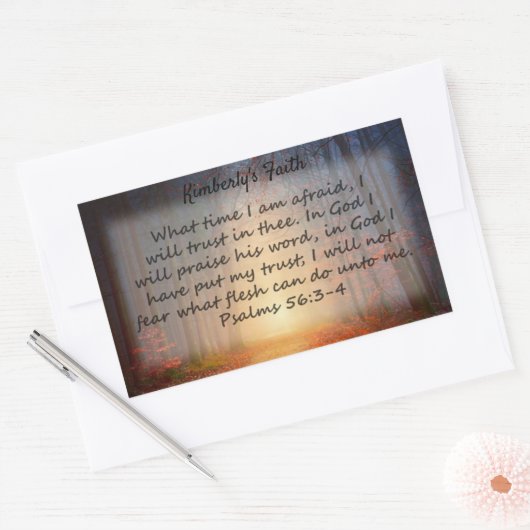 Kimberly's Faith
What time I am afraid, I
will trust in thee. In God I
will praise his word, in God I
have put my trust; I will not
fear what flesh can do unto me.
Psalms 56:3-4